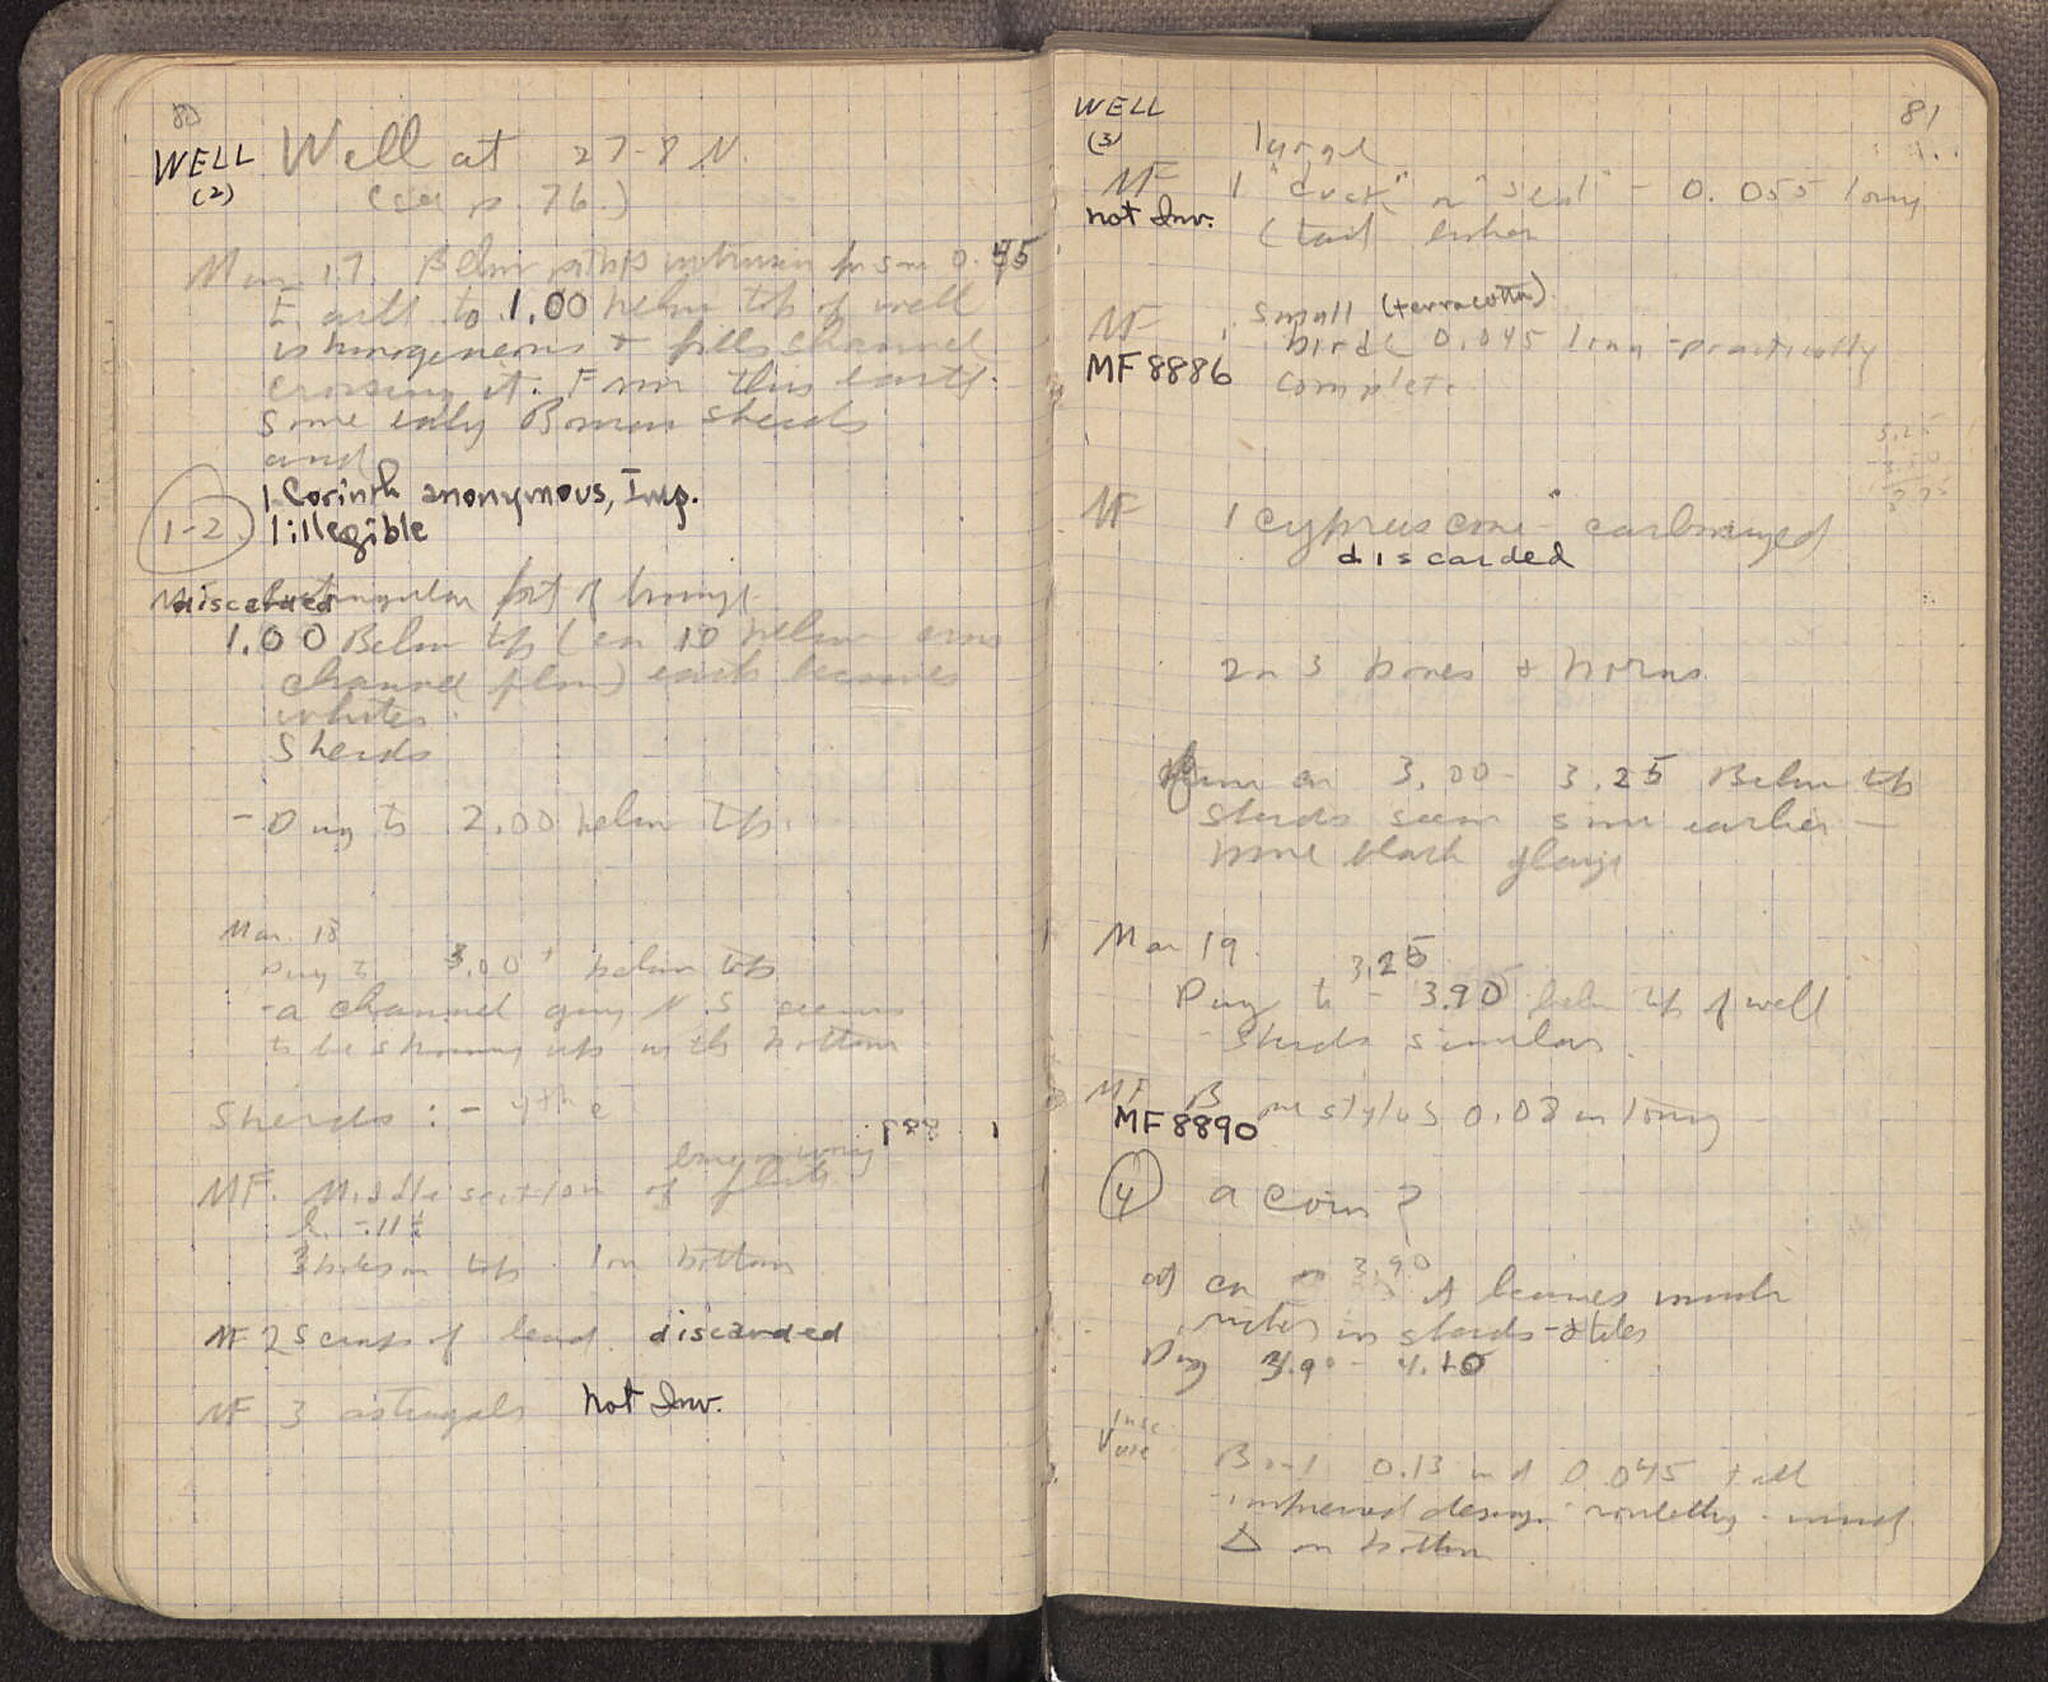 80
WELL Well at 27-8 N.
(2) (see p. 76.)
Mar. 17. Below this intrusion for some 0.45
E. well to 1.00 below top of well
is homogeneous + fills channel
crossing it. From this earth:
some early Roman sherds
and
1 Corinth anonymous, Imp.
1-2 1 illegible
discarded Rectangular frt of bronze
1.00 Below top (ca 10 below
channel floor) earth becomes
whiter.
Sherds
- Dug to 2.00 below top.
Mar. 18
Dug to 3.00+ below top
- a channel going N.S seems
to be showing up with bottom
Sherds : - 4th c
MF. Middle section of flute
h. -.11
3 holes on top 1 on bottom
MF 2 scraps of lead. discarded
MF 3 astragals Not Inv.
WELL 81
(3)
large
MF 1 "duck" or "seal" - 0.055 long
not Inv. (tail broken
small (terracotta)
MF 1 bird 0.045 long - practically
MF 8886 complete
MF 1 cyprus cone - carbonized
discarded
2 or 3 bones + horns.
From ca 3.00 - 3.25 Below top
sherds seem some earlier -
more black glaze
Mar 19.
3.25
Dug to - 3.90 below top of well
- Sherds similar.
MF B one stylus 0.08 m long
MF 8890
4 a coin?
at ca 3.90 it becomes much
richer in sherds - + tiles
Dug 3.90 - 4.10
Insc.
Vase
Bowl 0.13 m d 0.045 tall
- impressed design - rouletting - incised
Δ on bottom